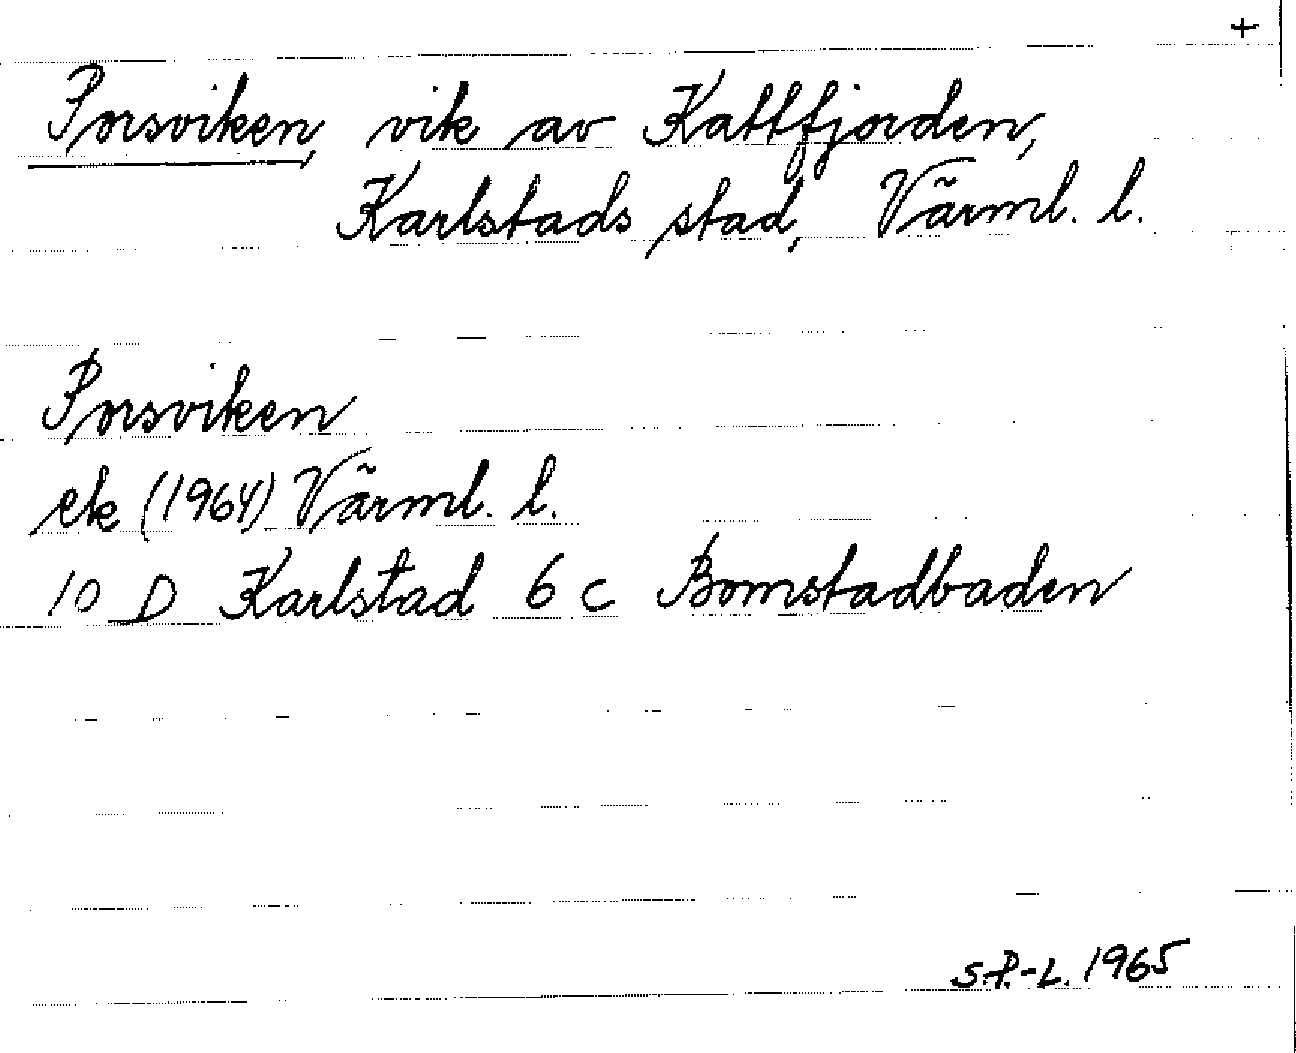 +
Porsviken, vik av Kattfjorden,
Karlstads stad, Värml. l.
Porsviken
ek (1964) Värml. l.
10 D Karlstad 6 c Bomstadbaden
S.P.-L. 1965